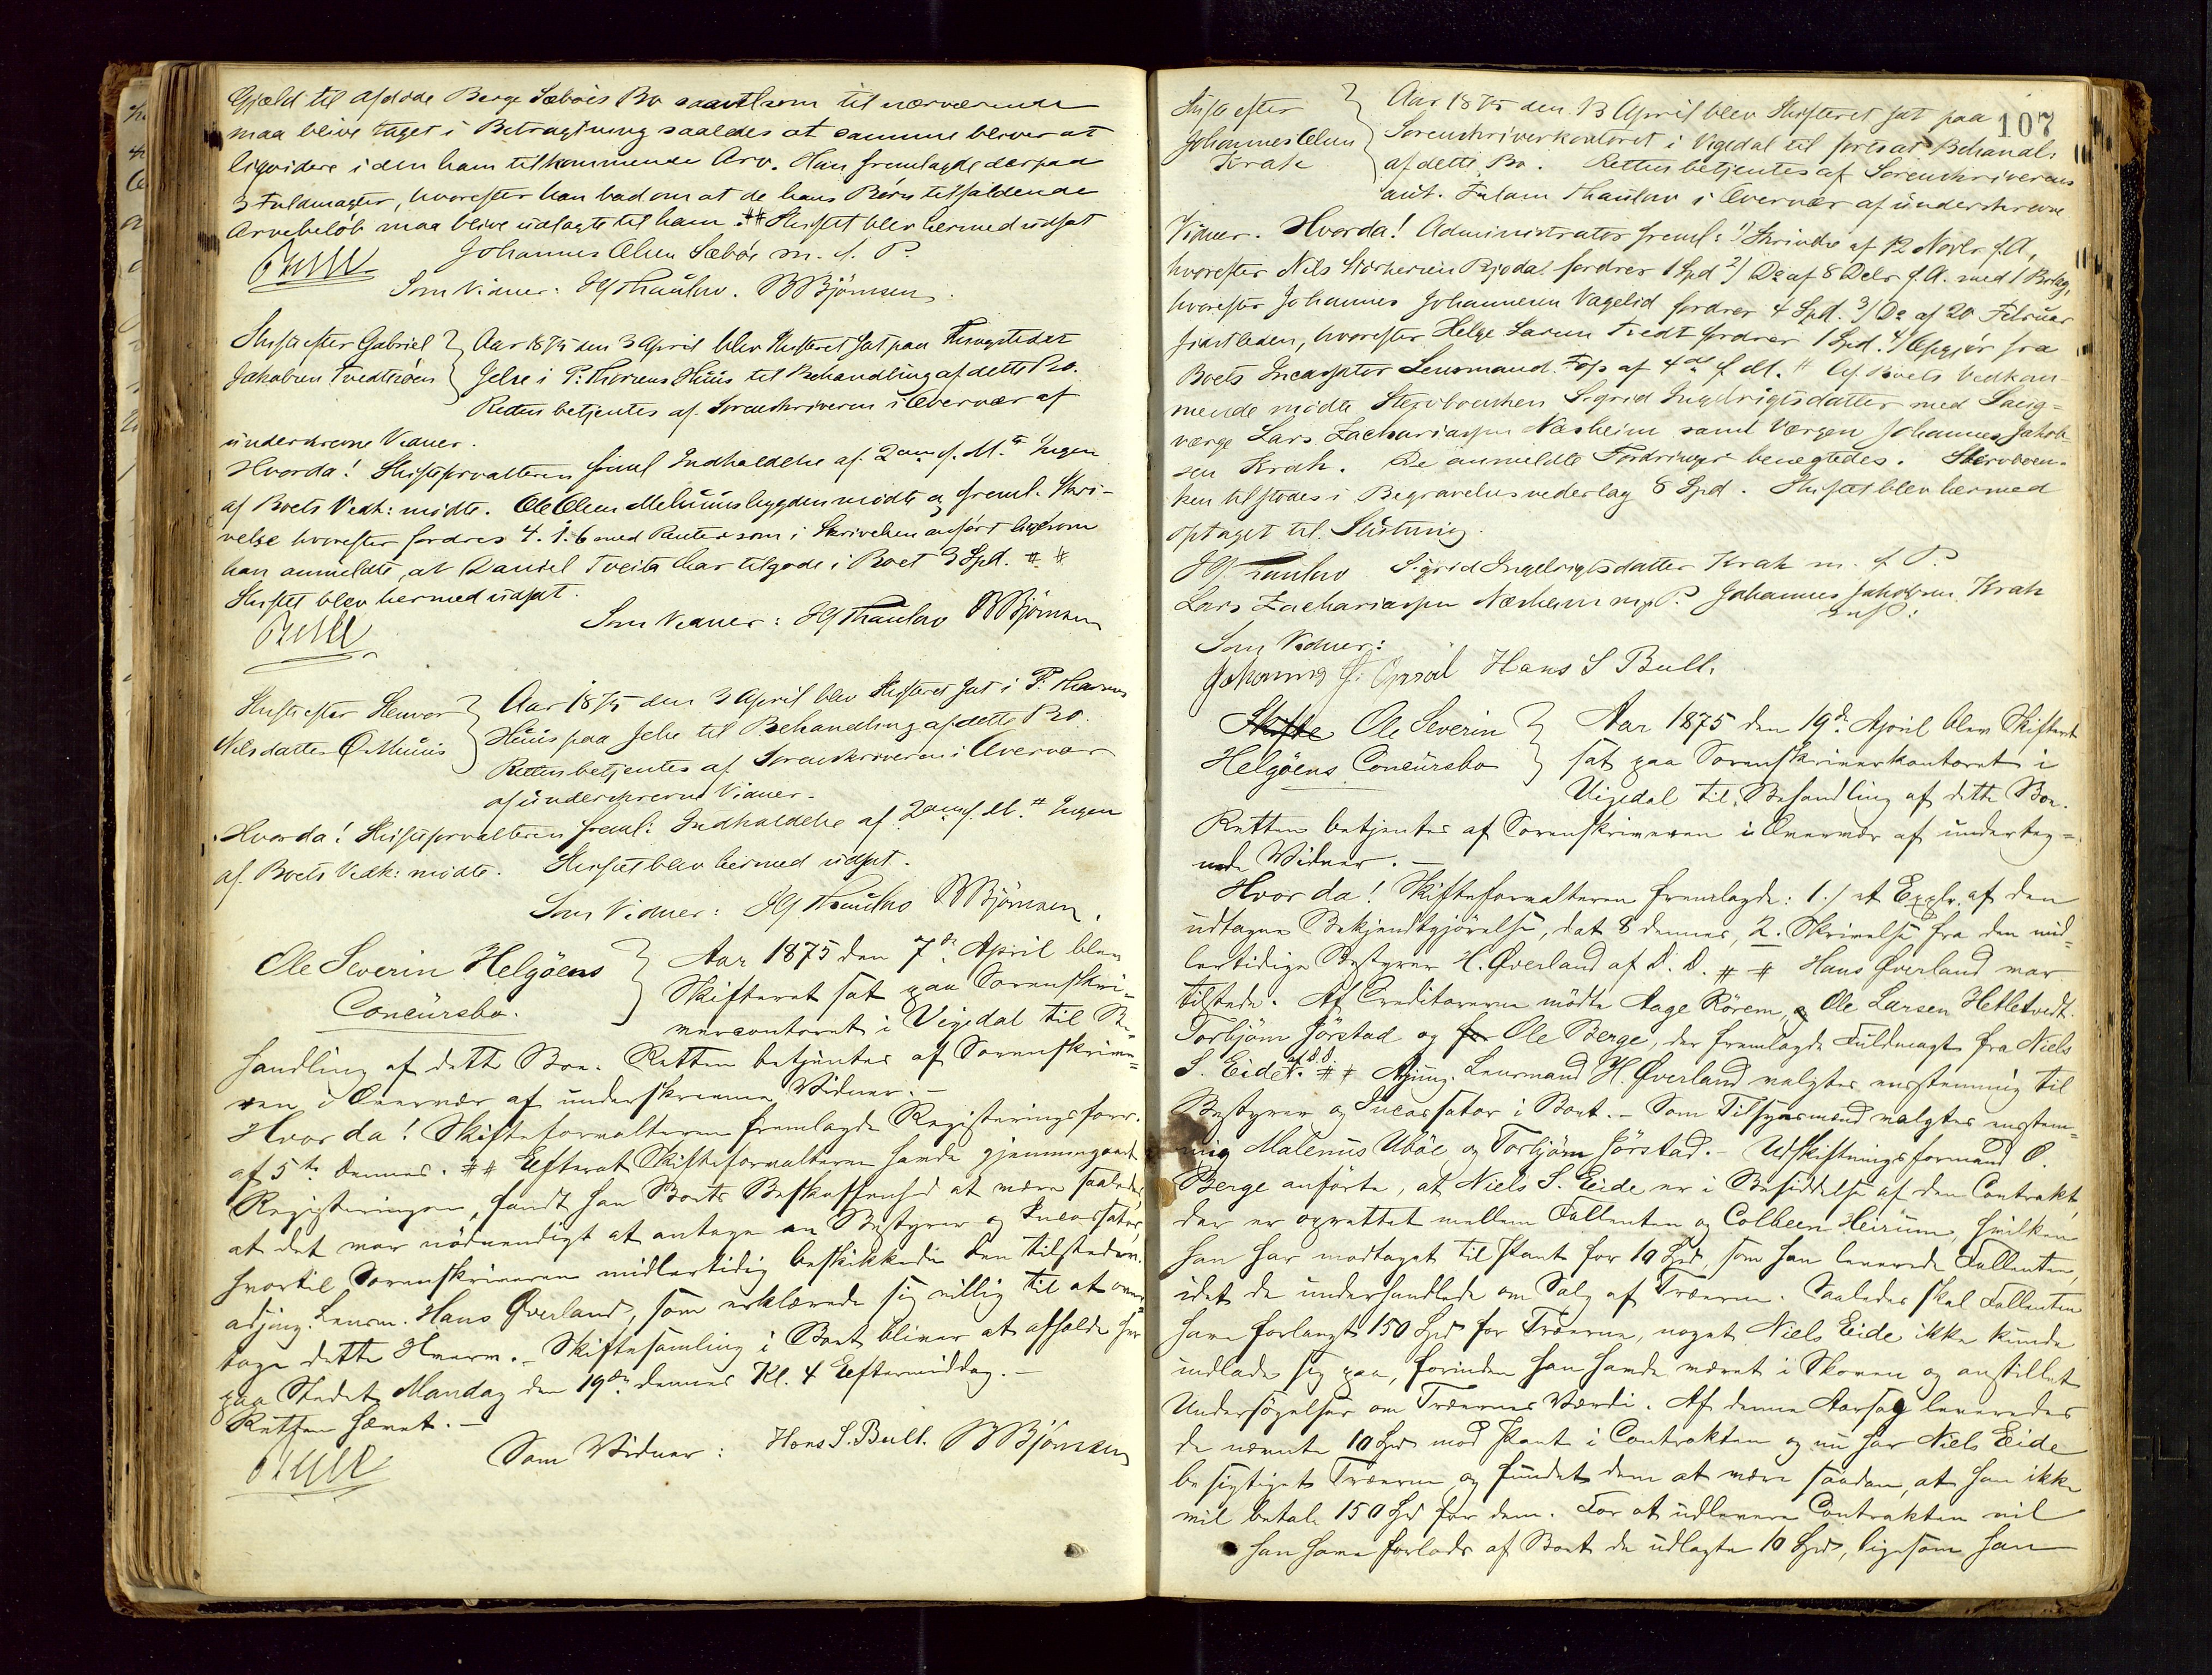 Gjæld til afdøde Berge Sæbøes Bo saavelsom til nærværende
maa blive taget i Betragtning saaledes at samme bliver at
liqvidere i den ham tilkommende Arv. Han fremlagde derpaa
3 Fuldmagter, hvorefter han bad om at de hans Børn tilfaldende
Arvebeløb maa blive udlagte til ham. ## Skiftet blev hermed udsat
Johannes Olsen Sæbøe m. f. P.
Bull
Som Vidner: HG Thaulow. B Bjørnsen.
Skifte efter Gabriel
Jakobsen Tvedteøen
Aar 1875 den 3 April blev Skifteret sat paa Thingstedet
Jelse i P. Thorsens Huus til Behandling af dette Bo.
Retten betjentes af Sorenskriveren i Overvær af
underskrevne Vidner.
Hvorda! Skifteforvalteren freml Indkaldelse af 2den f. M. # Ingen
af Boets Vedk: mødte. Ole Olsen Mehuusbygden mødte og freml. Skri-
velse hvorefter fordres 4. 1. 6 med Renter som i Skrivelsen anført ligesom
han anmeldte, at Daniel Tveita har tilgode i Boet 3 Spd. # #
Skiftet blev hermed udsat.
Som Vidner: HG Thaulow B Bjørnsen
Bull
Skifte efter
Nilsdatter
Aar 1875 den 3 April blev Skifteret sat i P. Thorsens
Huus paa Jelse til Behandling af dette Bo.
Retten betjentes af Sorenskriveren i Overvær
af underskrevne Vidner.
Hvorda! Skifteforvalteren freml: Indkaldelse af 2den f. M. # Ingen
af Boets Vedk: mødte. Skiftet blev hermed udsat.
Som Vidner: HG Thaulow B Bjørnsen.
Ole Severin Helgøens
Concursbo.
Aar 1875 den 7de April blev
Skifteret sat paa Sorenskri-
vercontoret i Vigedal til Be-
handling af dette Boe. Retten betjentes af Sorenskrive-
ren i Overvær af underskrevne Vidner. -
Hvor da! Skifteforvalteren fremlagde Registeringsforr.
af 5te dennes. ## Efterat Skifteforvalteren havde gjennemgaaet
Registeringen, fandt han Boets Beskaffenhed at være saaledes,
at det var nødvendigt at antage en Bestyrer og Incassator,
hvortil Sorenskriveren midlertidig beskikkede den tilstedev.
adjung. Lensm. Hans Øverland, som erklærede sig villig til at over-
tage dette Hverv. - Skiftesamling i Boet bliver at afholde her
paa Stedet Mandag den 19de dennes Kl. 4 Eftermiddag. -
Retten hævet. -
Som Vidner: Hans S. Bull. B Bjørnsen
Bull
107
Skifte efter
Johannes Olsen
Krak
Aar 1875 den 13 April blev Skifteret sat paa
Sorenskriverkontoret i Vigedal til fortsat Behand-
af dette Bo. Retten betjentes af Sorenskriverens
aut. Fuldm Thaulow i Overvær af underskrevne
Vidner. Hvorda! Administrator freml: 1) Skrivelse af 12 Novbr f. A,
hvorefter Nils fordrer 1 Spd 2) Do af 8 Debr f. A. med 1 Bilag,
hvorefter Johannes Johannesen Vagelid fordrer 4 Spd. 3) Do af 20 Februar
sidstleden, hvorefter Helge Larsen Tvedt fordrer 1 Spd. 4) Opgjør fra
Boets Incassator Lensmand Foss af 4de f M. # Af Boets Vedkom-
mende mødte Stervboenken Sigrid Ingebrigtsdatter med Laug-
værge Lars Zachariassen Næsheim samt Værgen Johannes Jakob
sen Krak. De anmeldte Fordringer benegtedes. Stervboen-
ken tilstodes i Begravelsesvederlag 8 Spd. Skiftet blev hermed
optaget til Slutning.
HG Thaulow Sigrid Ingebrigtsdatter Krak m. f. P.
Lars Zachariassen Næsheim m. f. P. Johannes Jakobsen Krak
m f P:
Som Vidner:
Johannes J. Opsal Hans S Bull.
Skifte Ole Severin
Helgøens Concursbo
Aar 1875 den 19de April blev Skifteret
sat paa Sorenskriverkontoret i
Vigedal til Behandling af dette Boe.
Retten betjentes af Sorenskriveren i Overvær af underteg-
nede Vidner. -
Hvor da! Skifteforvalteren fremlagde: 1./ et Explr. af den
udtagne Bekjendtgjørelse, dat 8 dennes, 2. Skrivelse fra den mid-
lertidige Bestyrer H. Øverland af D. D. # # Hans Øverland var
tilstede. Af Creditorerne mødte Aage Rörem, og Ole Larsen Hetletvedt.
Torbjørn Jørstad og for Ole Berge, der fremlagde Fuldmagt fra Niels
S. Eide af d. d. ## Adjung. Lensmand H. Øverland valgtes enstemmig til
Bestyrer og Incassator i Boet. - Som Tilsynsmænd valgtes enstem-
mig Malenius Ubøe og Torbjørn Jørstad. - Udskiftningsformand O.
Berge anførte, at Niels S. Eide er i Besiddelse af den Contrakt,
der er oprettet mellem Fallenten og Colbeen Heirum, hvilken
han har modtaget til Pant for 10 Spd, som han leverede Fallenten,
idet de underhandlede om Salg af Træerne. Saaledes skal Fallenten
have forlangt 150 Spd for Træerne, noget Niels Eide ikke kunde
indlade sig paa, forinden han havde været i Skoven og anstillet
Undersøgelser om Træernes Værdi. Af denne Aarsag leveredes
de nævnte 10 Spd mod Pant i Contrakten og nu har Niels Eide
besigtiget Træerne og fundet dem at være saadan, at han ikke
vil betale 150 Spd for dem. For at udlevere Contrakten vil
han have forlods af Boet de udlagte 10 Spd, ligesom han